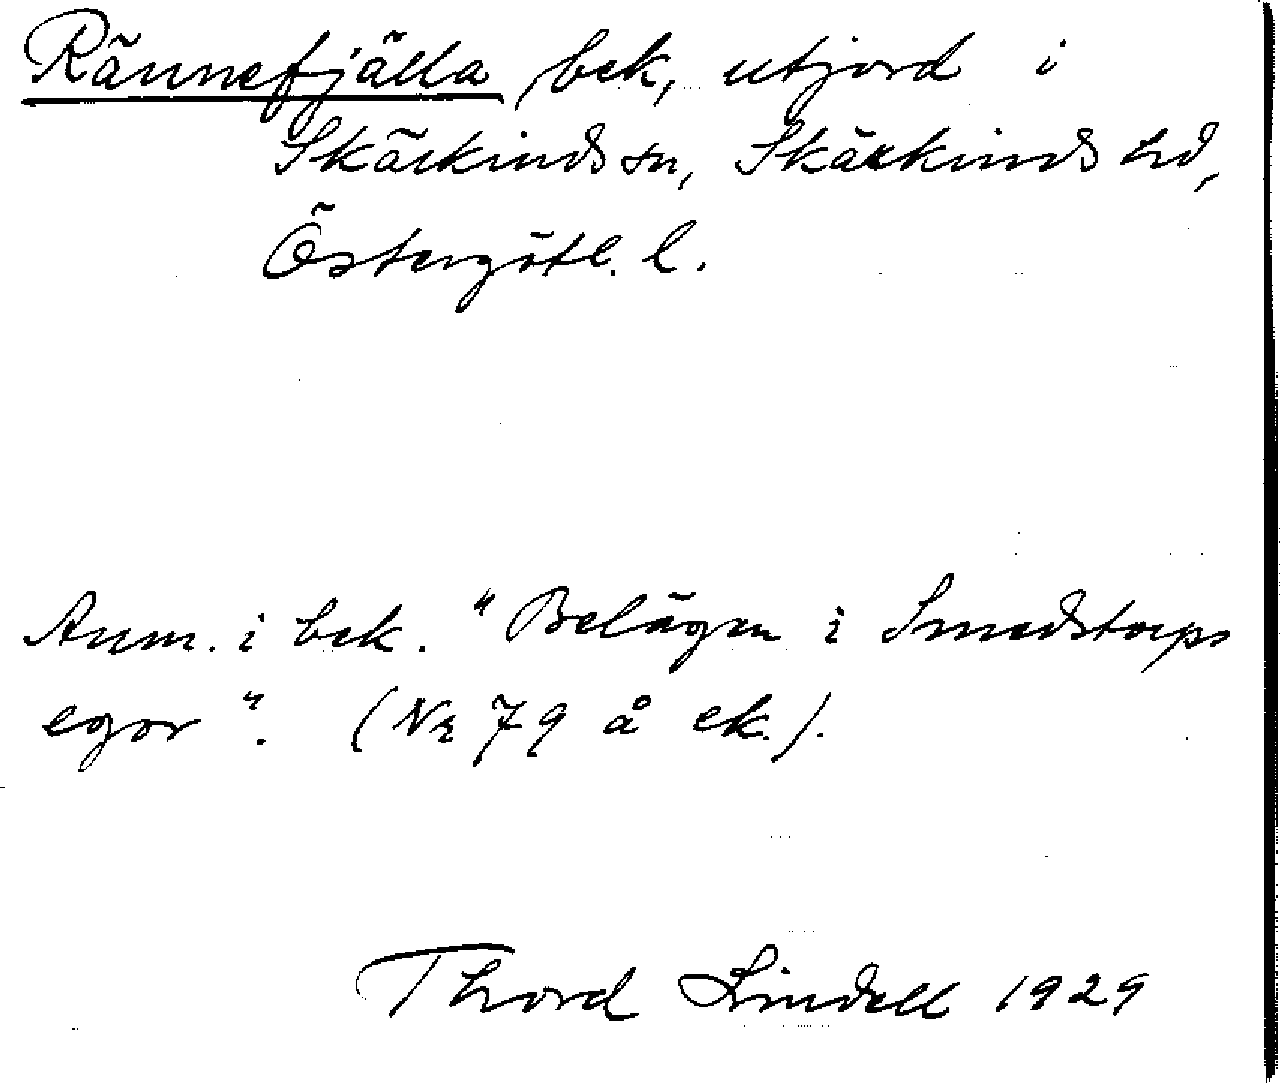 Rännefjälla bek, utjord i
Skärkinds sn, Skärkinds hd,
Östergötl. l.
Anm. i bek. "Belägen i Smedstorps
egor". (Nr 79 å ek.).
Thord Lindell 1929